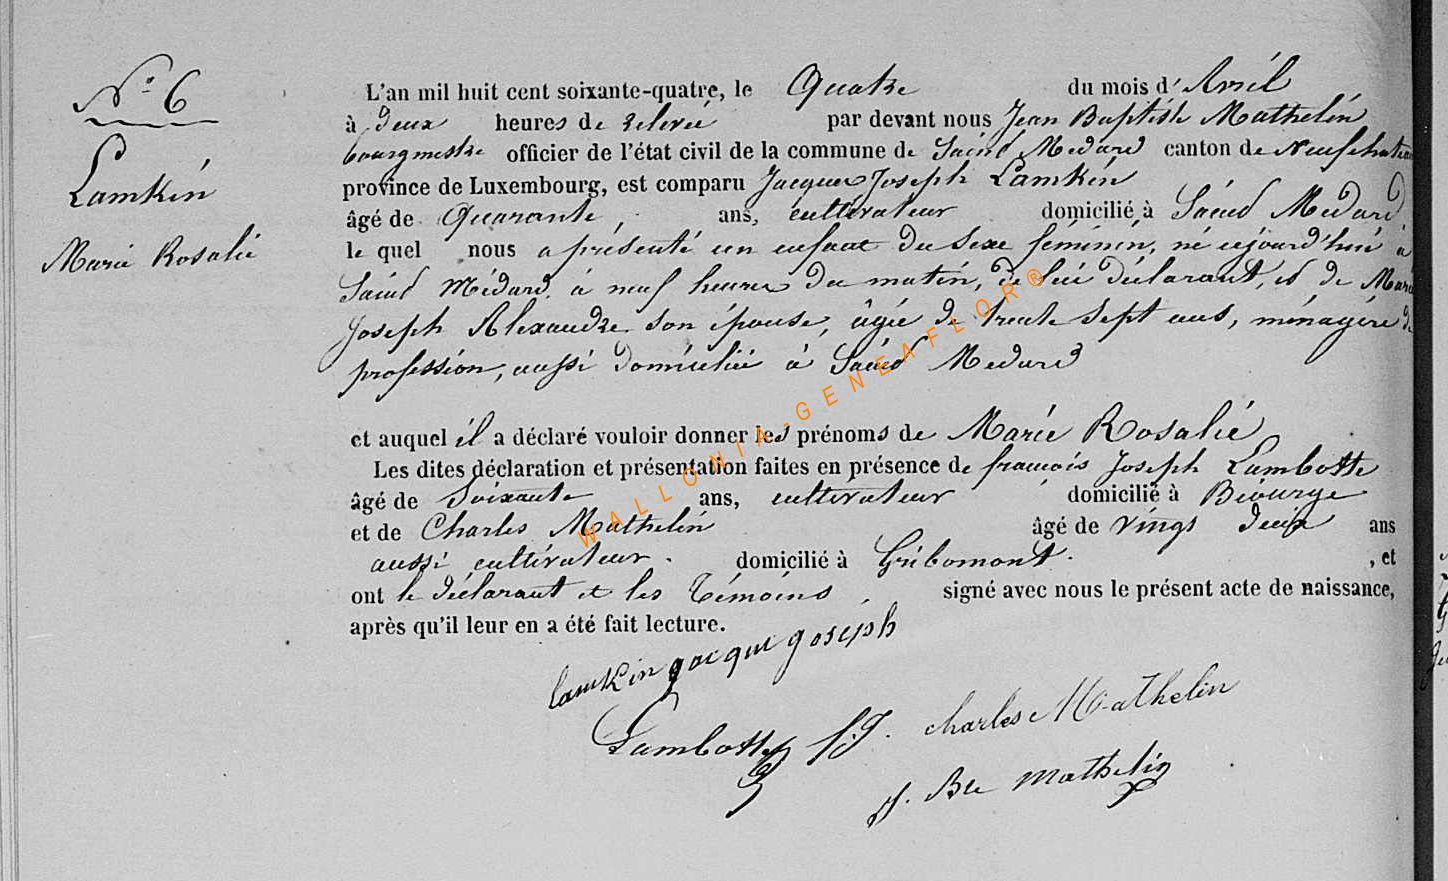 N° 6
Lamkin
Marie Rosalie
L'an mil huit cent soixante-quatre, le Quatre du mois d'Avril
à deux heures de relevée par devant nous Jean Baptiste Mathelin
bourgmestre officier de l'état civil de la commune de Saint Medard canton de Neufchateau
province de Luxembourg, est comparu Jacques Joseph Lamkin
âgé de Quarante ans, cultivateur domicilié à Saint Medard
le quel nous a présenté un enfant du sexe féminin, né cejourd'hui à
Saint Médard à neuf heures du matin, de lui déclarant, et de Marie
Joseph Alexandre son épouse, âgée de trente sept ans, ménagère de
profession, aussi domiciliée à Saint Medard
et auquel il a déclaré vouloir donner les prénoms de Marie Rosalie
Les dites déclaration et présentation faites en présence de françois Joseph Lambotte
âgé de Soixante ans, cultivateur domicilié à Biourge
et de Charles Mathelin âgé de vingt deux ans
aussi cultivateur. domicilié à Gribomont. , et
ont le déclarant et les témoins, signé avec nous le présent acte de naissance,
après qu'il leur en a été fait lecture.
lamkin jacque joseph
Lambotte f.J. charles Mathelin
J. Bte Mathelin
WALLONIA-GENEAFLOR®